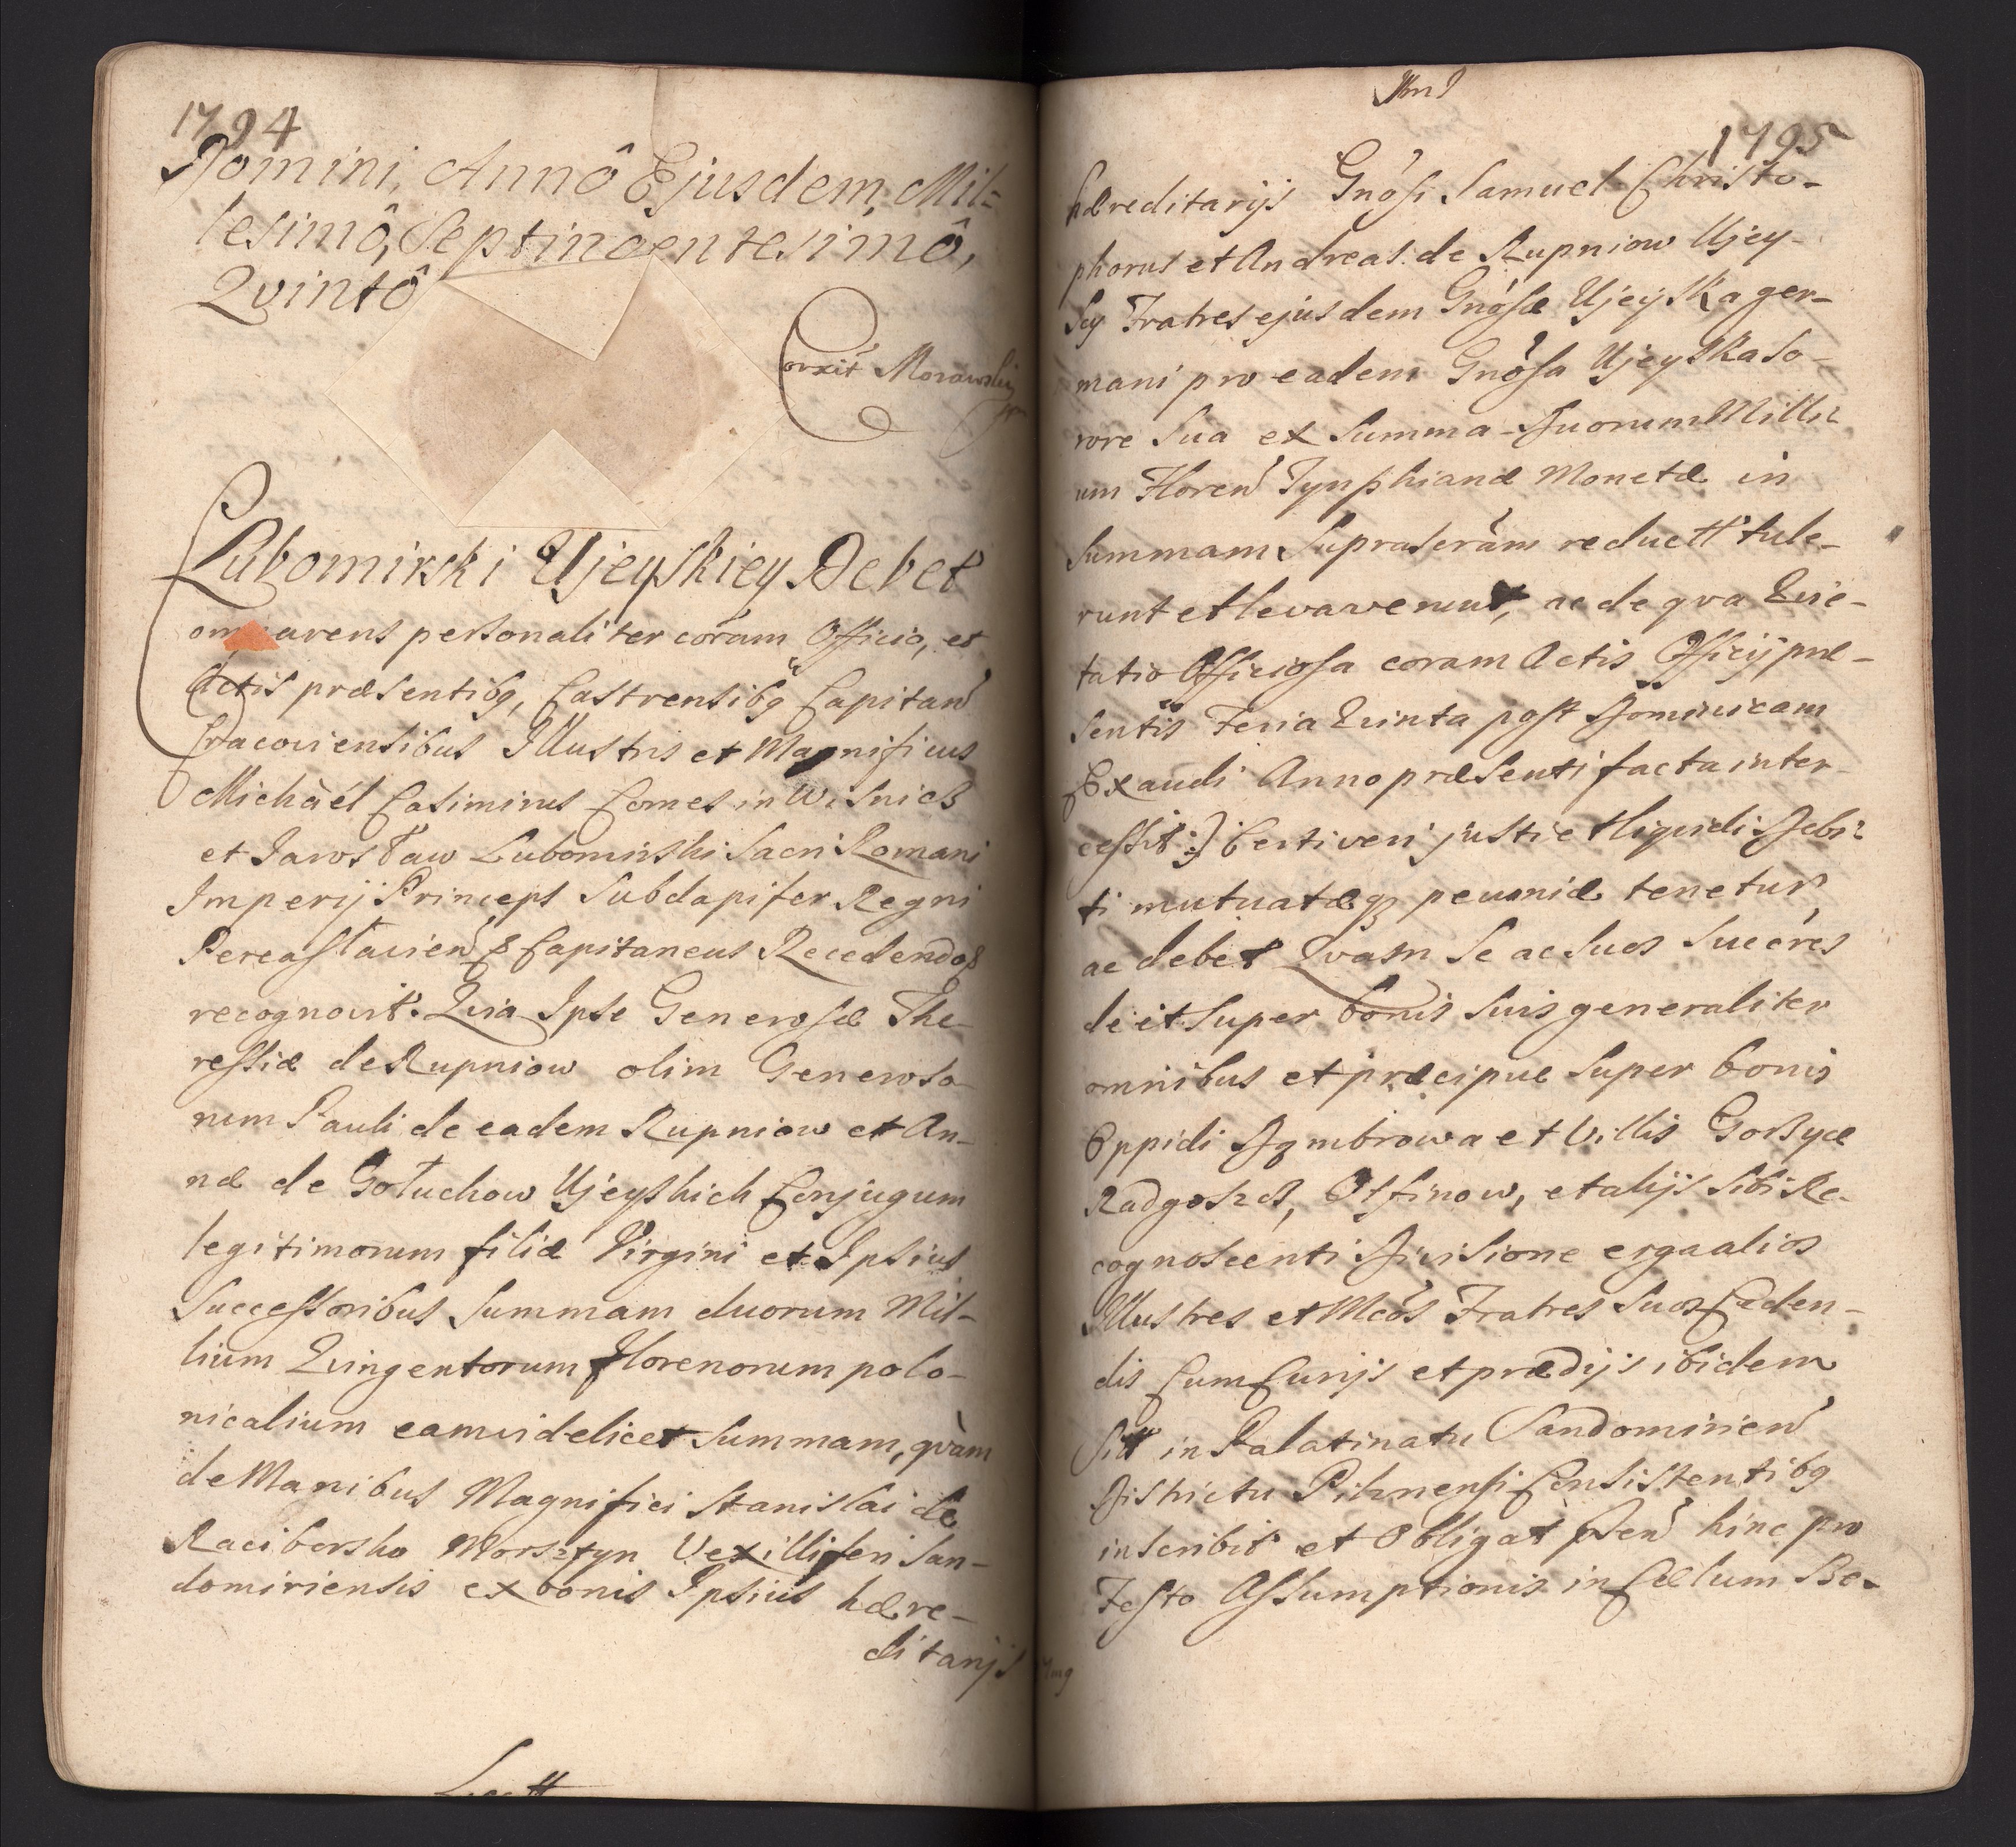 1794
Domini, Annô Ejusdem, Mil=
lesimô, Septingentesimô,
Qvintô
Corxit Morawski
Lubomirski Ujeyskiey Debet
omparens personaliter coram Officio, et
Actis præsentibq, Castrensibq Capitan
Cracoviensibus Illustris et Magnificus
Michaël Casimirus Comes in Wisnicz
et Jarosław Lubomirski Sacri Romani
Imperij Princeps Subdapifer Regni
Pereasłavien & Capitaneus Recedendoq
recognovit. Qvia Ipse Generosæ The-
ressiæ de Rupniow olim Generoso-
rum Pauli de eadem Rupniow et An-
næ de Gołuchow Ujeyskich Conjugum
legitimorum filiæ Virgini et Ipsius
Successoribus Summam duorum Mil-
lium Qvingentorum Florenorum polo-
nicalium eamvidelicet Summam, qvàm
de Manibus Magnifici Stanislai de
Racibersko Morsztyn Vexilliferi San-
domiriensis ex bonis Ipsius hære-
ditarijs
1795
hæreditarijs Gnosi Samuel Christo-
phorus et Andreas de Rupniow Ujey-
scy Fratres ejusdem Gnosæ Ujeyska ger-
mani pro eadem Gnosa Ujeyska So-
rore Sua ex Summa Duorum Milli-
um Floren Tynphianæ Monetæ in
Summam Suprascram reductt tule-
runt et levaverunt, ac de qva Qvie-
tatio Officiosa coram Actis Officij præ-
sentis Feria Qvinta post Dominicam
Exaudi Anno præsenti facta inter-
cessit :) Certi veri justi et liqvidi Debi-
ti mutuatæq pecuniæ tenetur
ac debet Qvam Se ac Suos Succres
de et Super bonis Suis generaliter
omnibus et præcipue Super bonis
Oppidi Dąmbrowa et Villis Gorzyce
Radgoszcz, Otfinow, et alijs Sibi Re-
cognoscenti Divisione erga alios
Illustres et Mcos Fratres Suos Cæden-
dis Cum Curijs et prædijs ibidem
Sitt in Palatinatu Sandomirien
Districtu Pilznensi Consistentibq
inscribit et Obligat hinc pro
Festo Assumptionis in Cælum Be-